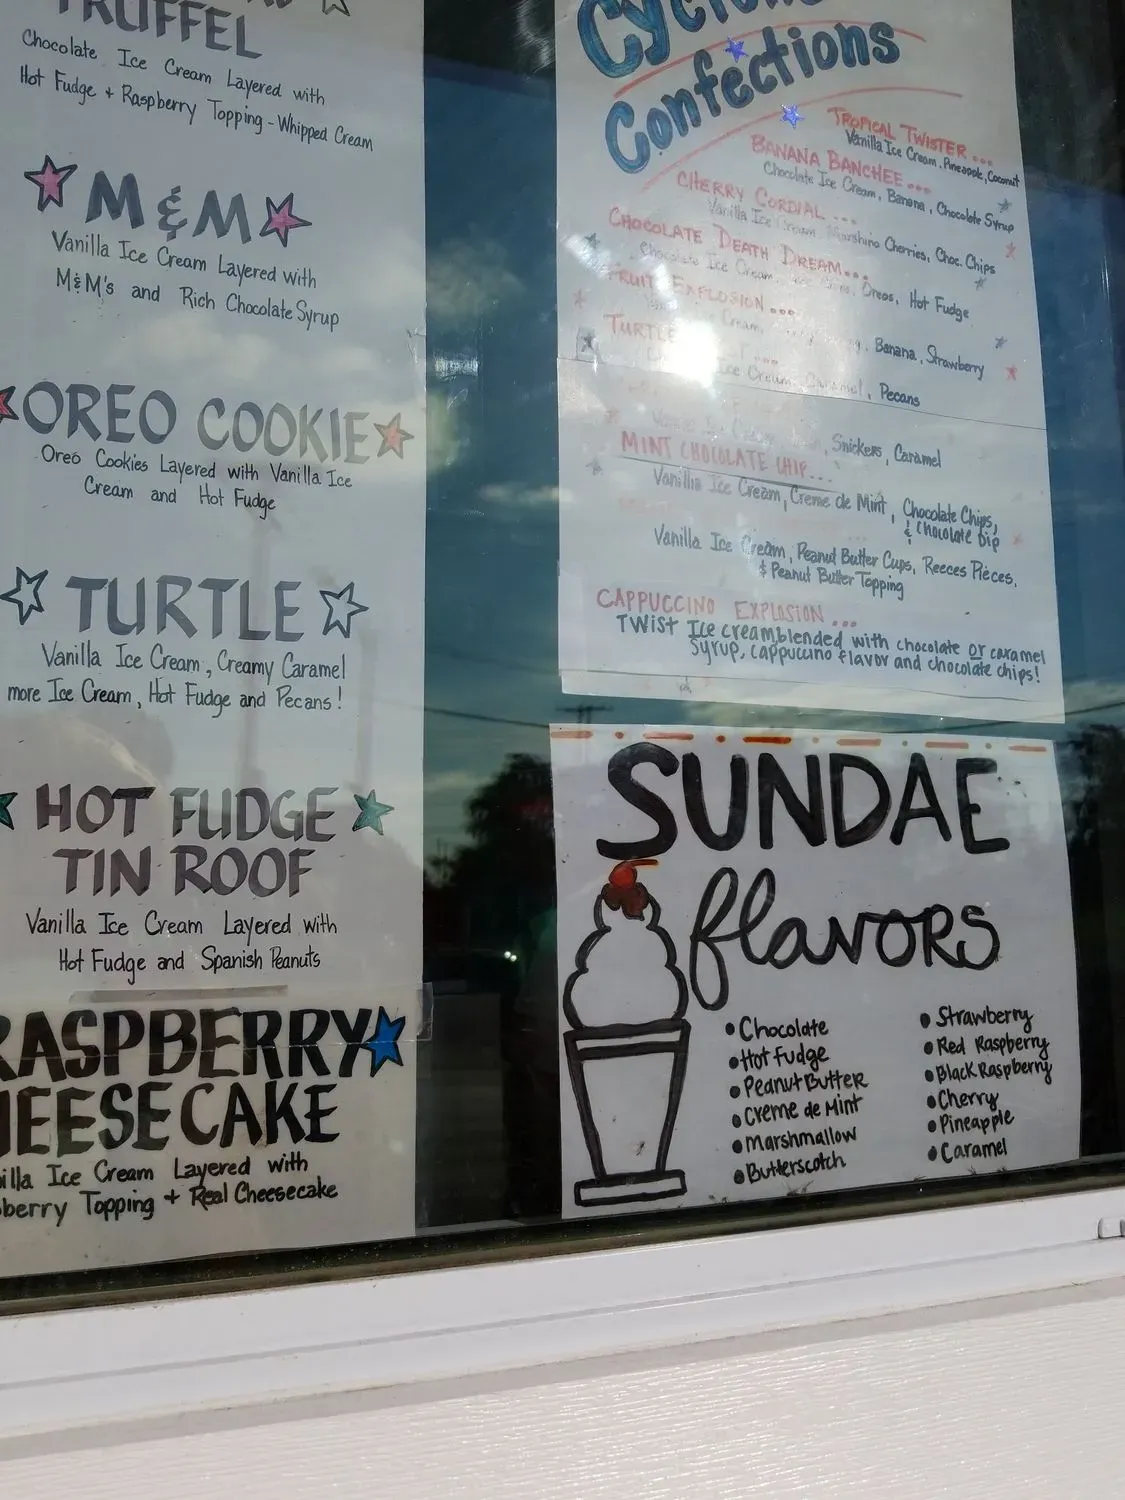 TRUFFEL
Chocolate Ice Cream Layered with
Hot Fudge + Raspberry Topping - Whipped Cream
M & M
Vanilla Ice Cream Layered with
M&M's and Rich Chocolate Syrup
OREO COOKIE
Oreo Cookies Layered with Vanilla Ice
Cream and Hot Fudge
TURTLE
Vanilla Ice Cream, Creamy Caramel
more Ice Cream, Hot Fudge and Pecans!
HOT FUDGE
TIN ROOF
Vanilla Ice Cream Layered with
Hot Fudge and Spanish Peanuts
RASPBERRY
HEESECAKE
illa Ice Cream Layered with
berry Topping + Real Cheesecake
Cyclone
Confections
TROPICAL TWISTER...
Vanilla Ice Cream, Pineapple, Coconut
BANANA BANCHEE...
Chocolate Ice Cream, Banana, Chocolate Syrup
CHERRY CORDIAL...
Vanilla Ice Cream, Marshino Cherries, Choc. Chips
CHOCOLATE DEATH DREAM...
Chocolate Ice Cream, Oreos, Hot Fudge
FRUIT EXPLOSION...
Cream, Banana, Strawberry
TURTLE ...
Ice Cream, Caramel, Pecans
Snickers, Caramel
MINT CHOCOLATE CHIP...
Vanilla Ice Cream, Creme de Mint, Chocolate Chips,
& Chocolate Dip
Vanilla Ice Cream, Peanut Butter Cups, Reeces Pieces,
& Peanut Butter Topping
CAPPUCCINO EXPLOSION...
TWIST Ice cream blended with chocolate or caramel
syrup, cappuccino flavor and chocolate chips!
SUNDAE
flavors
• Chocolate
• Hot Fudge
• Peanut Butter
• Creme de Mint
• Marshmallow
• Butterscotch
• Strawberry
• Red Raspberry
• Black Raspberry
• Cherry
• Pineapple
• Caramel